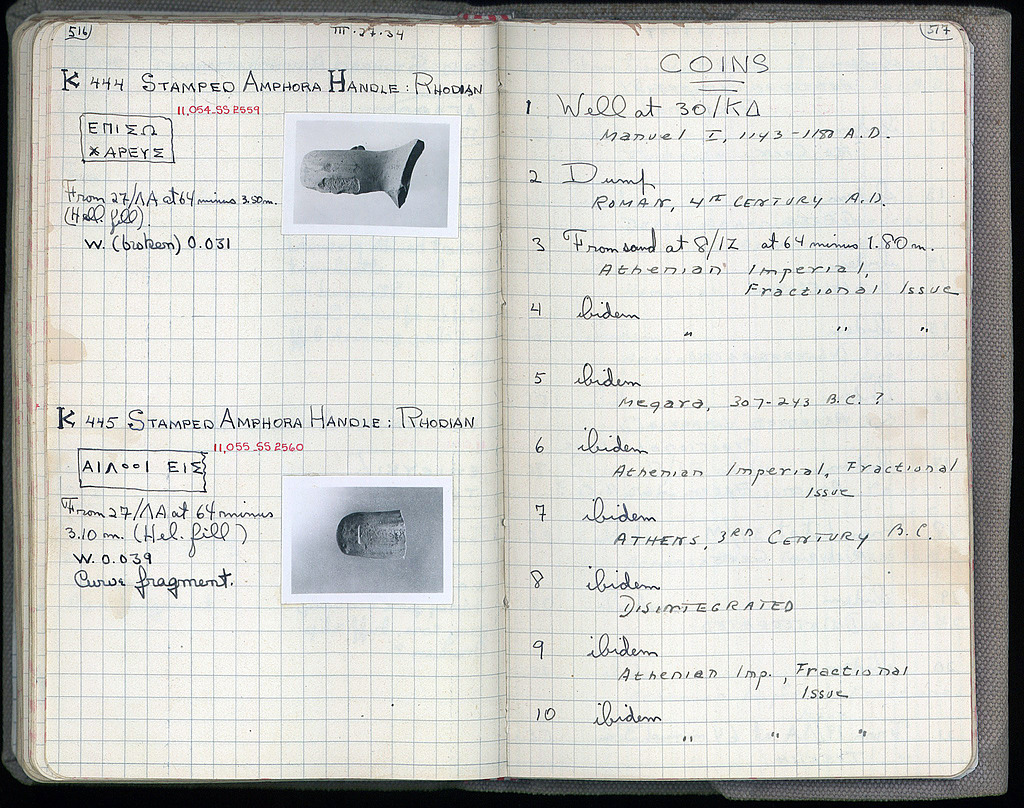 516
III·27·34
K 444 STAMPED AMPHORA HANDLE : RHODIAN
11,054_SS 2559
ΕΠΙΣΩ
ΧΑΡΕΥΣ
From 27/ΛΑ at 64 minus 3.50 m.
(Hel. fill)
W. (broken) 0.031
K 445 STAMPED AMPHORA HANDLE : RHODIAN
11,055_SS 2560
From 27/ΛΑ at 64 minus
3.10 m. (Hel. fill)
W. 0.039
Curve fragment.
517
COINS
1 Well at 30/ΚΔ
Manuel I, 1143-1180 A.D.
2 Dump
ROMAN, 4TH CENTURY A.D.
3 From sand at 8/ΙΖ at 64 minus 1.80 m.
Athenian Imperial,
Fractional Issue
4 ibidem
" " "
5 ibidem
Megara, 307-243 B.C. ?
6 ibidem
Athenian Imperial, Fractional
Issue
7 ibidem
ATHENS, 3RD CENTURY B.C.
8 ibidem
DISINTEGRATED
9 ibidem
Athenian Imp., Fractional
Issue
10 ibidem
" " "